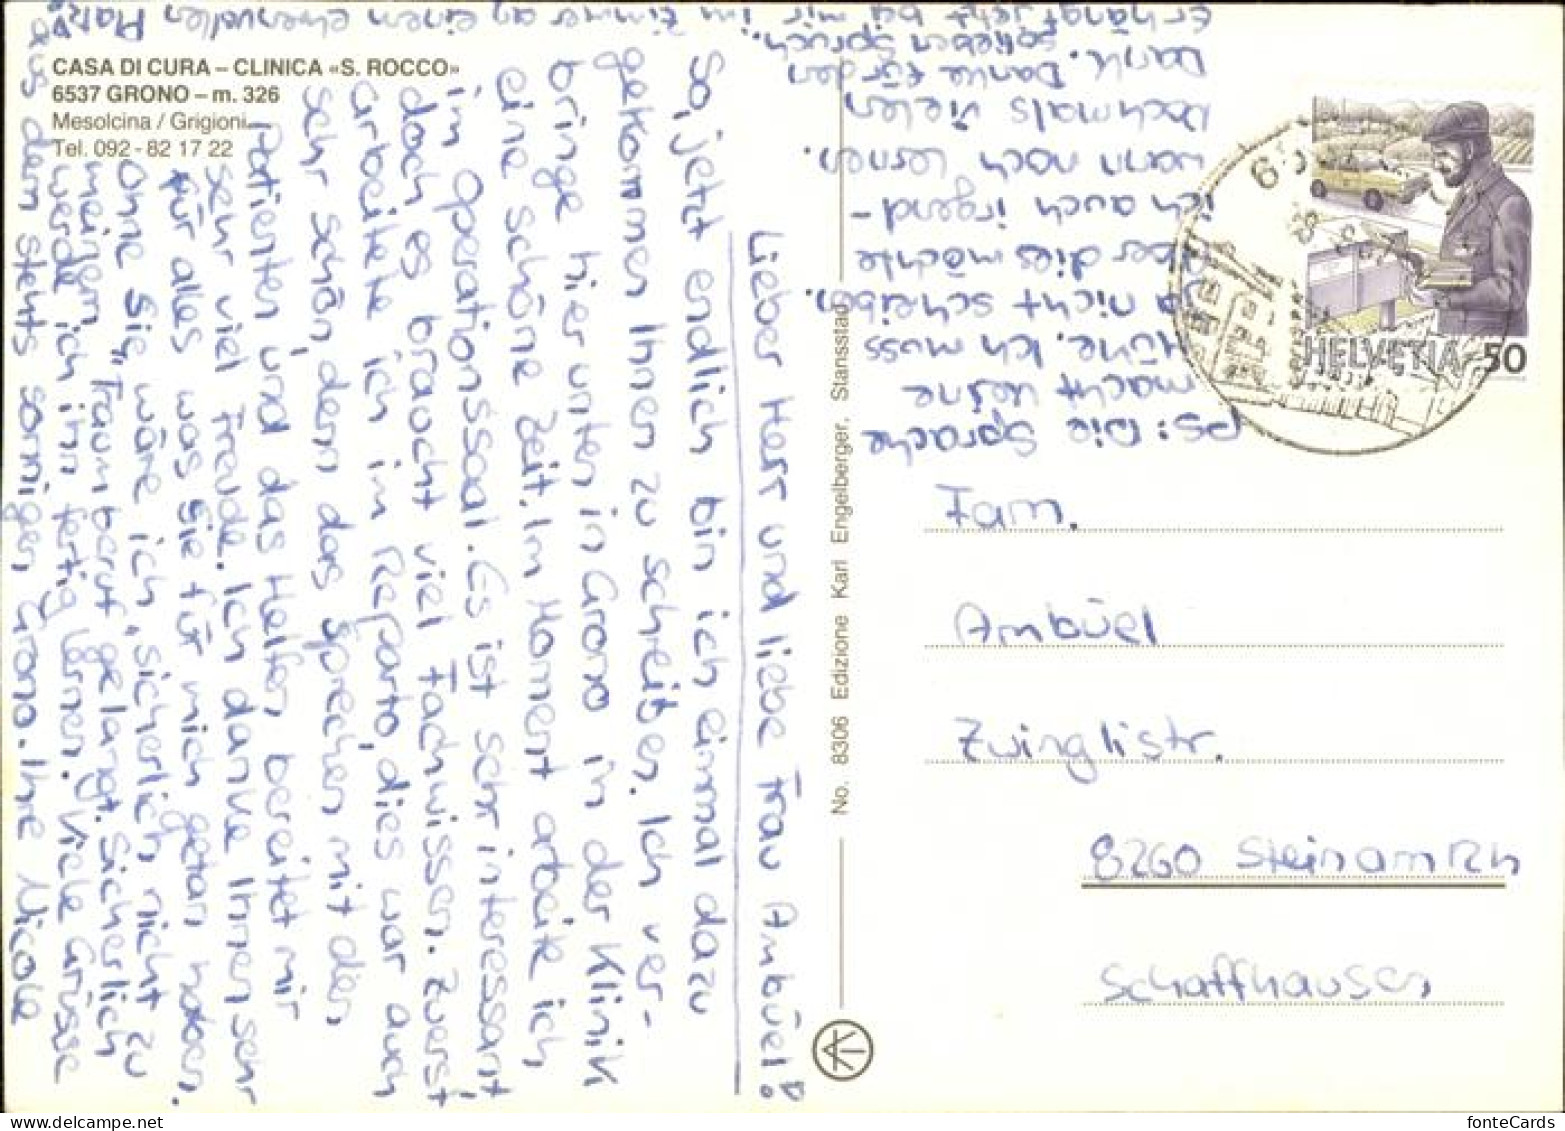 CASA DI CURA – CLINICA «S. ROCCO»
6537 GRONO – m. 326
Mesolcina / Grigioni
Tel. 092 - 82 17 22
Lieber Herr und liebe Frau Ambüel!
So, jetzt endlich bin ich einmal dazu
gekommen Ihnen zu schreiben. Ich ver-
bringe hier unten in Grono in der Klinik
eine schöne Zeit. Im Moment arbeite ich
im Operationssaal. Es ist sehr interessant
doch es braucht viel Fachwissen. Zuerst
arbeitete ich im Reparto, dies war auch
sehr schön, denn das Sprechen mit den
Patienten und das Helfen, bereitet mir
sehr viel Freude. Ich danke Ihnen sehr
für alles was sie für mich getan haben.
Ohne Sie, wäre ich, sicherlich, nicht zu
meinem "Traumberuf gelangt. Sicherlich
werde ich ihn fertig lernen. Viele Grüsse
aus dem stehts sonnigen Grono. Ihre Nicole
PS: Die Sprache
macht keine
Mühe. Ich muss
ja nicht schreiben.
Aber dies möchte
ich auch irgend-
wann noch lernen.
Nochmals vielen
Dank. Danke für den
lieben Spruch.
Er hängt jetzt bei mir im Zimmer an einem ehrenvollen Platz!
No. 8306 Edizione Karl Engelberger, Stansstad
HELVETIA 50
Fam.
Ambüel
Zwinglistr.
8260 Stein am Rh
Schaffhausen
fonteCards